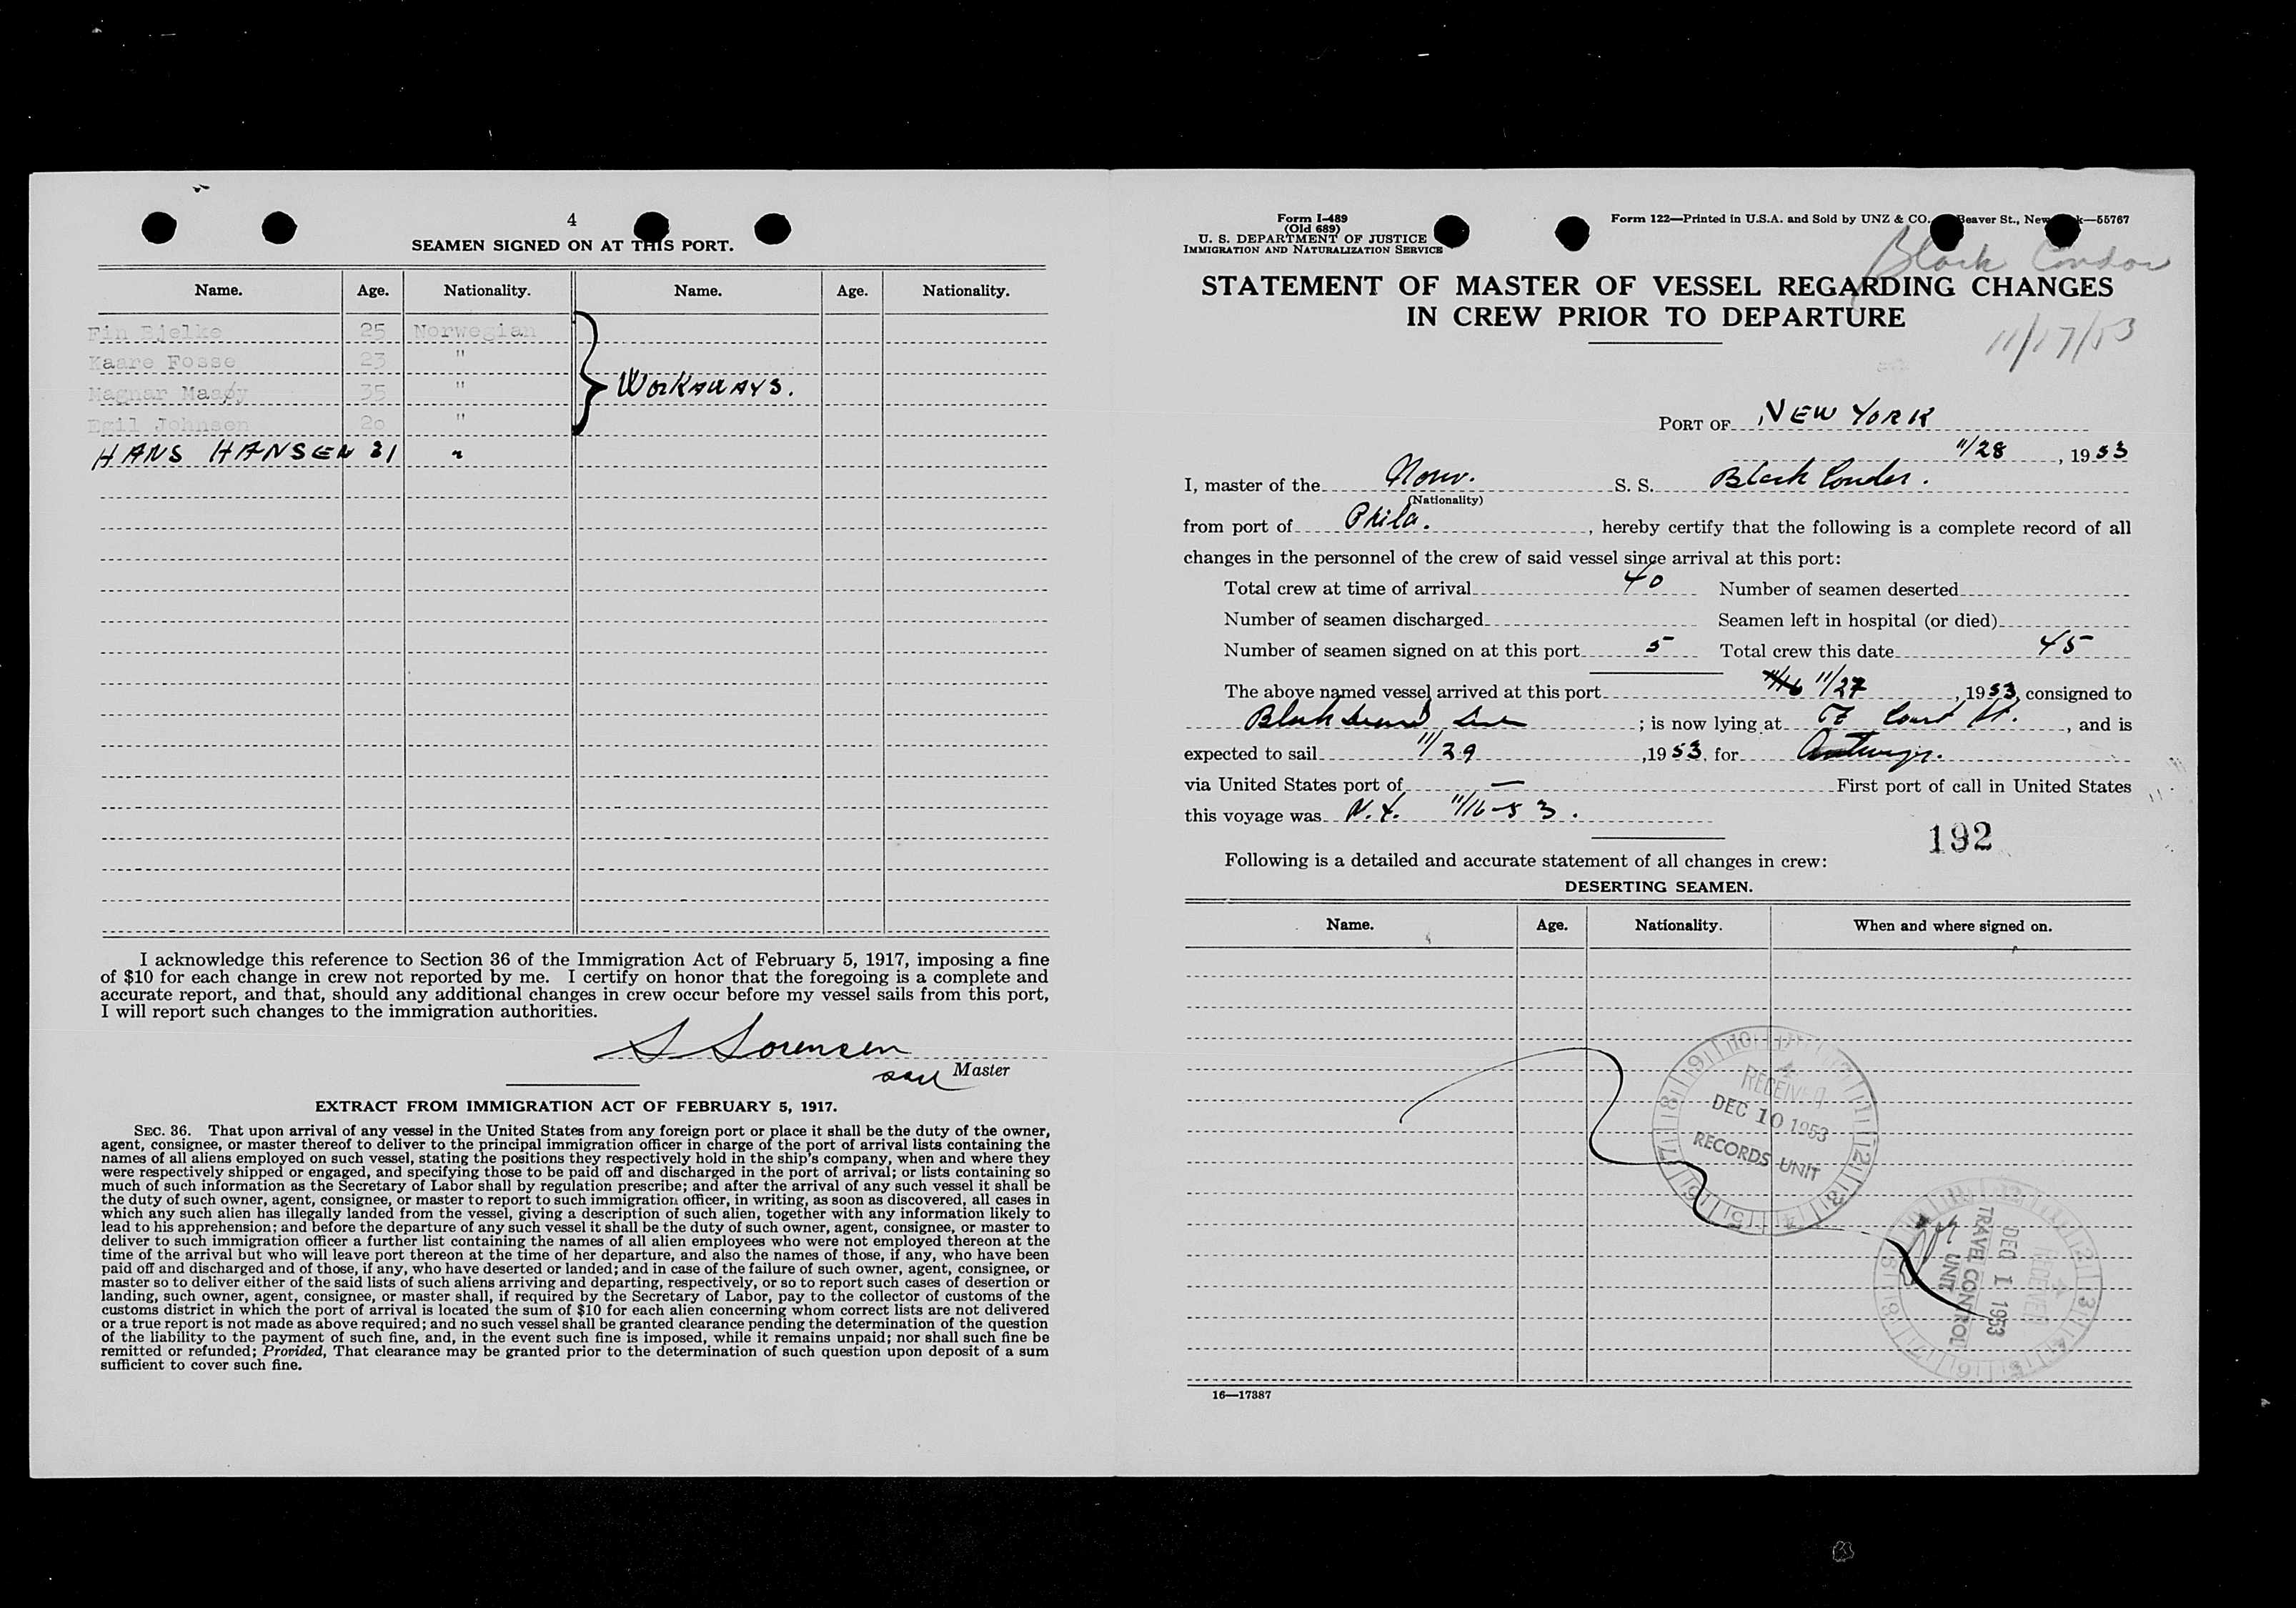 4
SEAMEN SIGNED ON AT THIS PORT.
Name. Age. Nationality. Name. Age. Nationality.
Fin Bjelke 25 Norwegian
Kaare Fosse 23 "
Magnar Maaøy 35 " WORKAWAYS.
Egil Johnsen 20 "
HANS HANSEN 31 "
I acknowledge this reference to Section 36 of the Immigration Act of February 5, 1917, imposing a fine
of $10 for each change in crew not reported by me. I certify on honor that the foregoing is a complete and
accurate report, and that, should any additional changes in crew occur before my vessel sails from this port,
I will report such changes to the immigration authorities.
S Sorensen
Master
EXTRACT FROM IMMIGRATION ACT OF FEBRUARY 5, 1917.
SEC. 36. That upon arrival of any vessel in the United States from any foreign port or place it shall be the duty of the owner,
agent, consignee, or master thereof to deliver to the principal immigration officer in charge of the port of arrival lists containing the
names of all aliens employed on such vessel, stating the positions they respectively hold in the ship's company, when and where they
were respectively shipped or engaged, and specifying those to be paid off and discharged in the port of arrival; or lists containing so
much of such information as the Secretary of Labor shall by regulation prescribe; and after the arrival of any such vessel it shall be
the duty of such owner, agent, consignee, or master to report to such immigration officer, in writing, as soon as discovered, all cases in
which any such alien has illegally landed from the vessel, giving a description of such alien, together with any information likely to
lead to his apprehension; and before the departure of any such vessel it shall be the duty of such owner, agent, consignee, or master to
deliver to such immigration officer a further list containing the names of all alien employees who were not employed thereon at the
time of the arrival but who will leave port thereon at the time of her departure, and also the names of those, if any, who have been
paid off and discharged and of those, if any, who have deserted or landed; and in case of the failure of such owner, agent, consignee, or
master so to deliver either of the said lists of such aliens arriving and departing, respectively, or so to report such cases of desertion or
landing, such owner, agent, consignee, or master shall, if required by the Secretary of Labor, pay to the collector of customs of the
customs district in which the port of arrival is located the sum of $10 for each alien concerning whom correct lists are not delivered
or a true report is not made as above required; and no such vessel shall be granted clearance pending the determination of the question
of the liability to the payment of such fine, and, in the event such fine is imposed, while it remains unpaid; nor shall such fine be
remitted or refunded; Provided, That clearance may be granted prior to the determination of such question upon deposit of a sum
sufficient to cover such fine.
Form I-489
(Old 689)
U. S. DEPARTMENT OF JUSTICE
IMMIGRATION AND NATURALIZATION SERVICE
Form 122—Printed in U.S.A. and Sold by UNZ & CO. Beaver St., New k—55767
Black Condor
STATEMENT OF MASTER OF VESSEL REGARDING CHANGES
IN CREW PRIOR TO DEPARTURE
11/17/53
PORT OF NEW YORK
11/28, 1953
I, master of the Norw. S. S. Black Condor.
(Nationality)
from port of Phila., hereby certify that the following is a complete record of all
changes in the personnel of the crew of said vessel since arrival at this port:
Total crew at time of arrival 40 Number of seamen deserted
Number of seamen discharged Seamen left in hospital (or died)
Number of seamen signed on at this port 5 Total crew this date 45
The above named vessel arrived at this port 11/16 11/27, 1953, consigned to
Black Diamond Line; is now lying at Ft Court St., and is
expected to sail 11/29, 1953. for Antwerp.
via United States port of — First port of call in United States
this voyage was N.Y. 11/16-53.
192
Following is a detailed and accurate statement of all changes in crew:
DESERTING SEAMEN.
Name. Age. Nationality. When and where signed on.
RECEIVED
DEC 10 1953
RECORDS UNIT
RECEIVED
DEC 1 1953
TRAVEL CONTROL
UNIT
16—17387